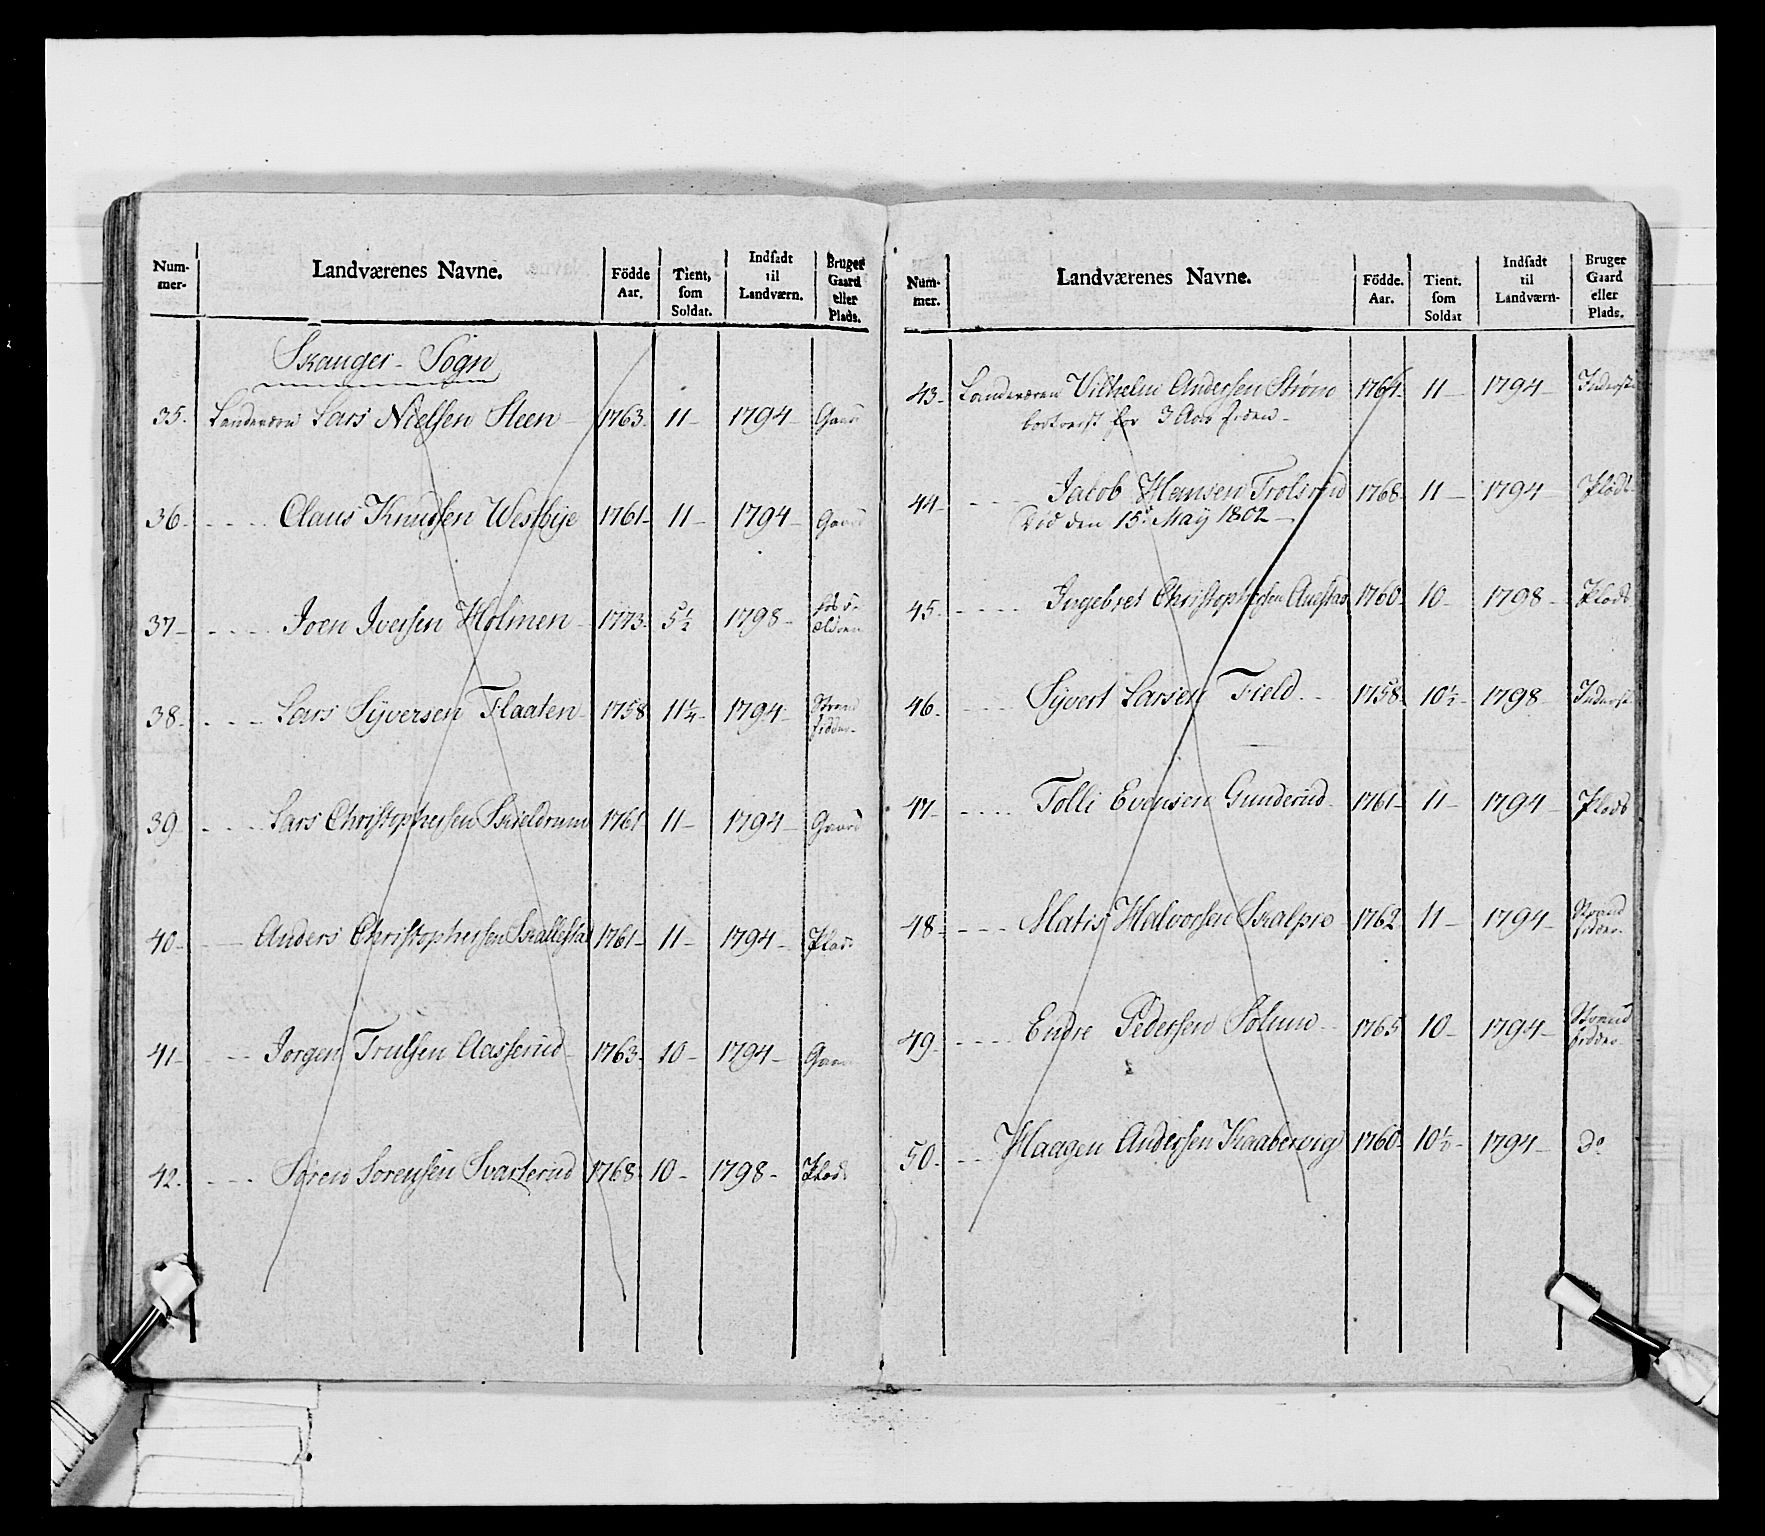 Num-mer. Landværenes Navne. Födde Aar. Tient, som Soldat. Indsadt til Landværn. Bruger Gaard eller Plads.
Skauger- Sogn
35. Landværn Lars Nielsen Steen - 1763. 11- 1794- Gaard
36- Claus Knudsen Westbije 1761- 11- 1794- Gaard
37- Joen Iversen Holmen- 1773. 5½ 1798-
38- Lars Sÿversen Flaaten- 1758 11¼- 1794- Strand sidder-
39 Lars Christophersen Skieldrum 1761 11- 1794- Gaard
40- Anders Christophersen Skallestad 1761- 11- 1794- Plads
41- Jorgen Trulsen Aasserud- 1763- 10- 1794- Gaard
42. Sören Sorensen Svarterud 1768- 10- 1798- Plads
Num-mer. Landværenes Navne. Födde. Aar. Tient. som Soldat Indsadt til Landværn- Bruger Gaard eller Plads.
43- Landværn Vilhelm Andersen Ström 1764- 11- 1794- Inderst
bortreist for 3 Aar siden-
44- Jacob Hansen Trolsrud 1768- 11- 1794- Plads
Död den 15de Maÿ 1802-
45. Ingebret Christophersen Auestad 1760- 10- 1798- Plads
46. Sÿvert Larsen Field- 1758- 10½- 1798- Inderst
47- Tolli Evensen Gunderud- 1761- 11- 1794- Plads
48- Matis Halvorsen Skalpro 1762 11- 1794- Strand sidder-
49- Endre Pedersen Solum- 1765 10- 1794- Strand sidder-
50- Haagen Andersen Kaabervig 1760- 10½- 1794- do